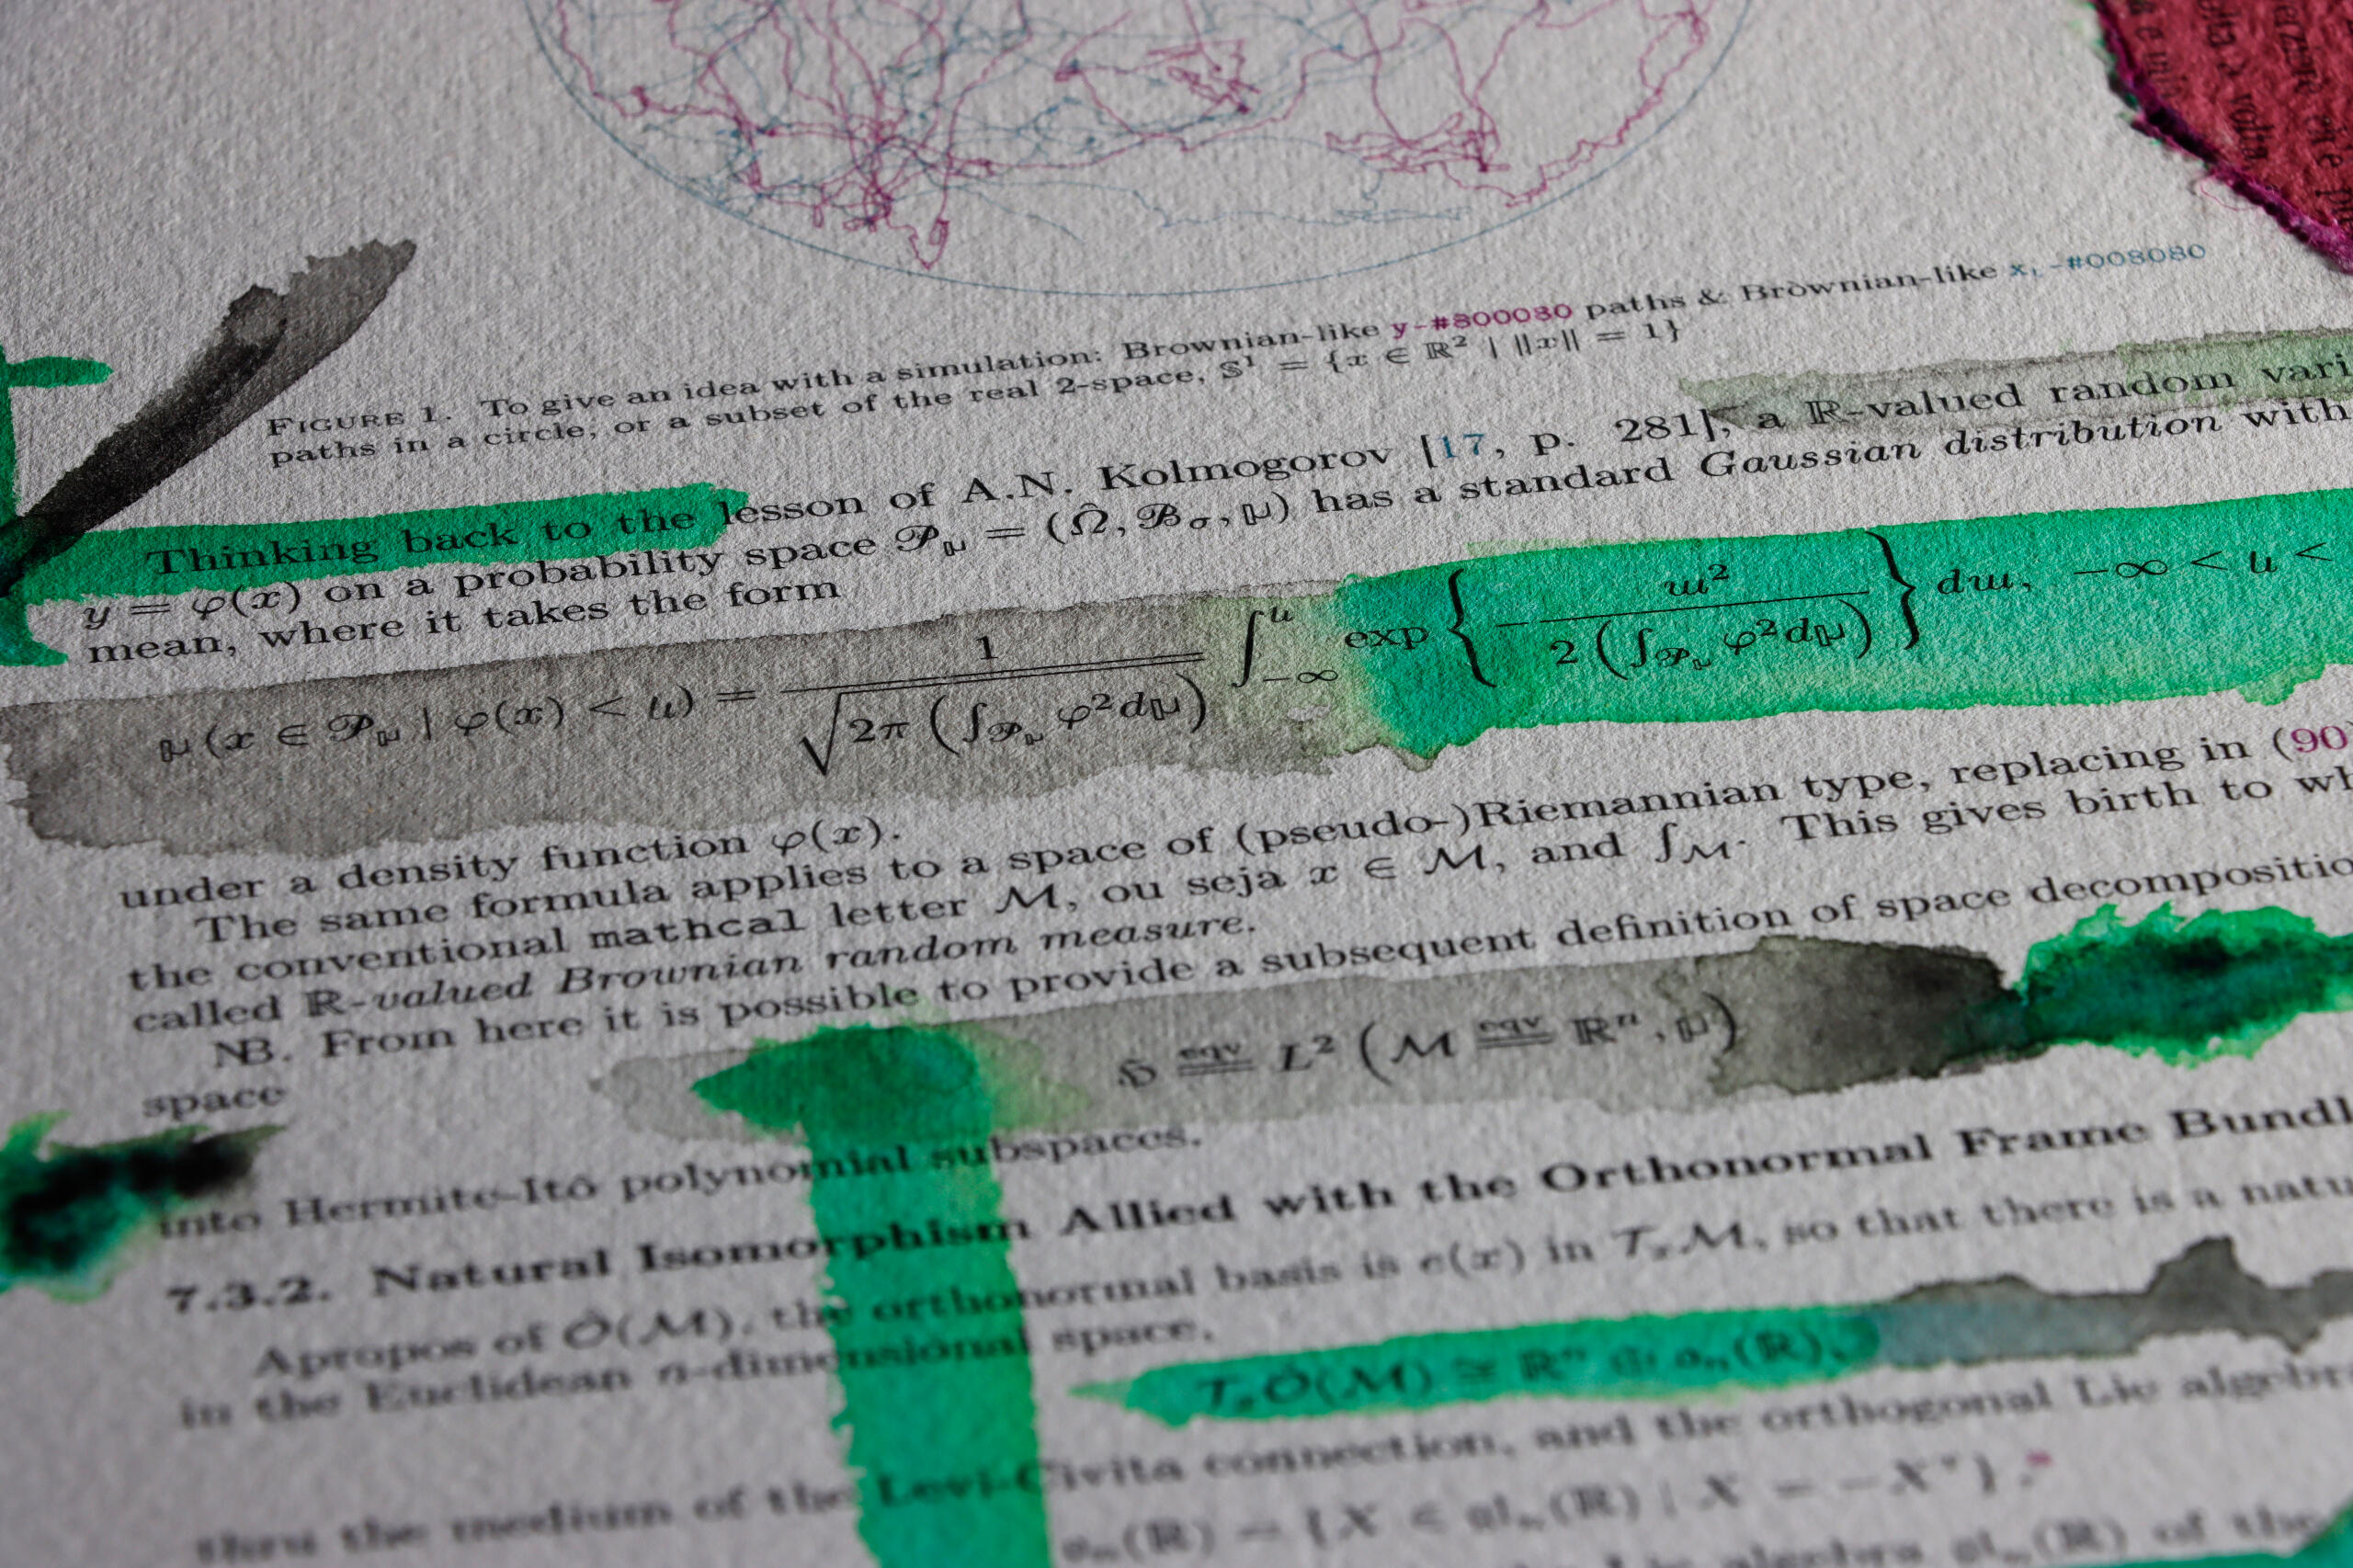 FIGURE 1. To give an idea with a simulation: Brownian-like y-#800080 paths & Brownian-like x, -#008080
paths in a circle, or a subset of the real 2-space, 𝕊¹ = {x ∈ ℝ² | ‖x‖ = 1}
Thinking back to the lesson of A.N. Kolmogorov [17, p. 281], a ℝ-valued random vari
y = φ(x) on a probability space 𝒫_μ = (Ω̂, ℬ_σ, μ) has a standard Gaussian distribution with
mean, where it takes the form
μ(x ∈ 𝒫_μ | φ(x) < u) = 1 / √(2π (∫_𝒫_μ φ² dμ)) ∫_{−∞}^{u} exp { − ɯ² / 2 (∫_𝒫_μ φ² dμ) } dɯ, −∞ < u <
under a density function φ(x).
The same formula applies to a space of (pseudo-)Riemannian type, replacing in (90)
the conventional mathcal letter ℳ, ou seja x ∈ ℳ, and ∫_ℳ. This gives birth to wh
called ℝ-valued Brownian random measure.
NB. From here it is possible to provide a subsequent definition of space decompositio
space
ℌ eqv== L² (ℳ eqv== ℝⁿ, μ)
into Hermite-Itô polynomial subspaces.
7.3.2. Natural Isomorphism Allied with the Orthonormal Frame Bundl
Apropos of Ô(ℳ), the orthonormal basis is e(x) in 𝒯ₓℳ, so that there is a natu
in the Euclidean n-dimensional space.
𝒯ₓÔ(ℳ) ≅ ℝⁿ ⊕ 𝔬ₙ(ℝ),
thru the medium of the Levi-Civita connection, and the orthogonal Lie algebr
𝔬ₙ(ℝ) = {X ∈ 𝔤𝔩ₙ(ℝ) | X = −Xᵀ}
Lie algebra 𝔤𝔩ₙ(ℝ) of the